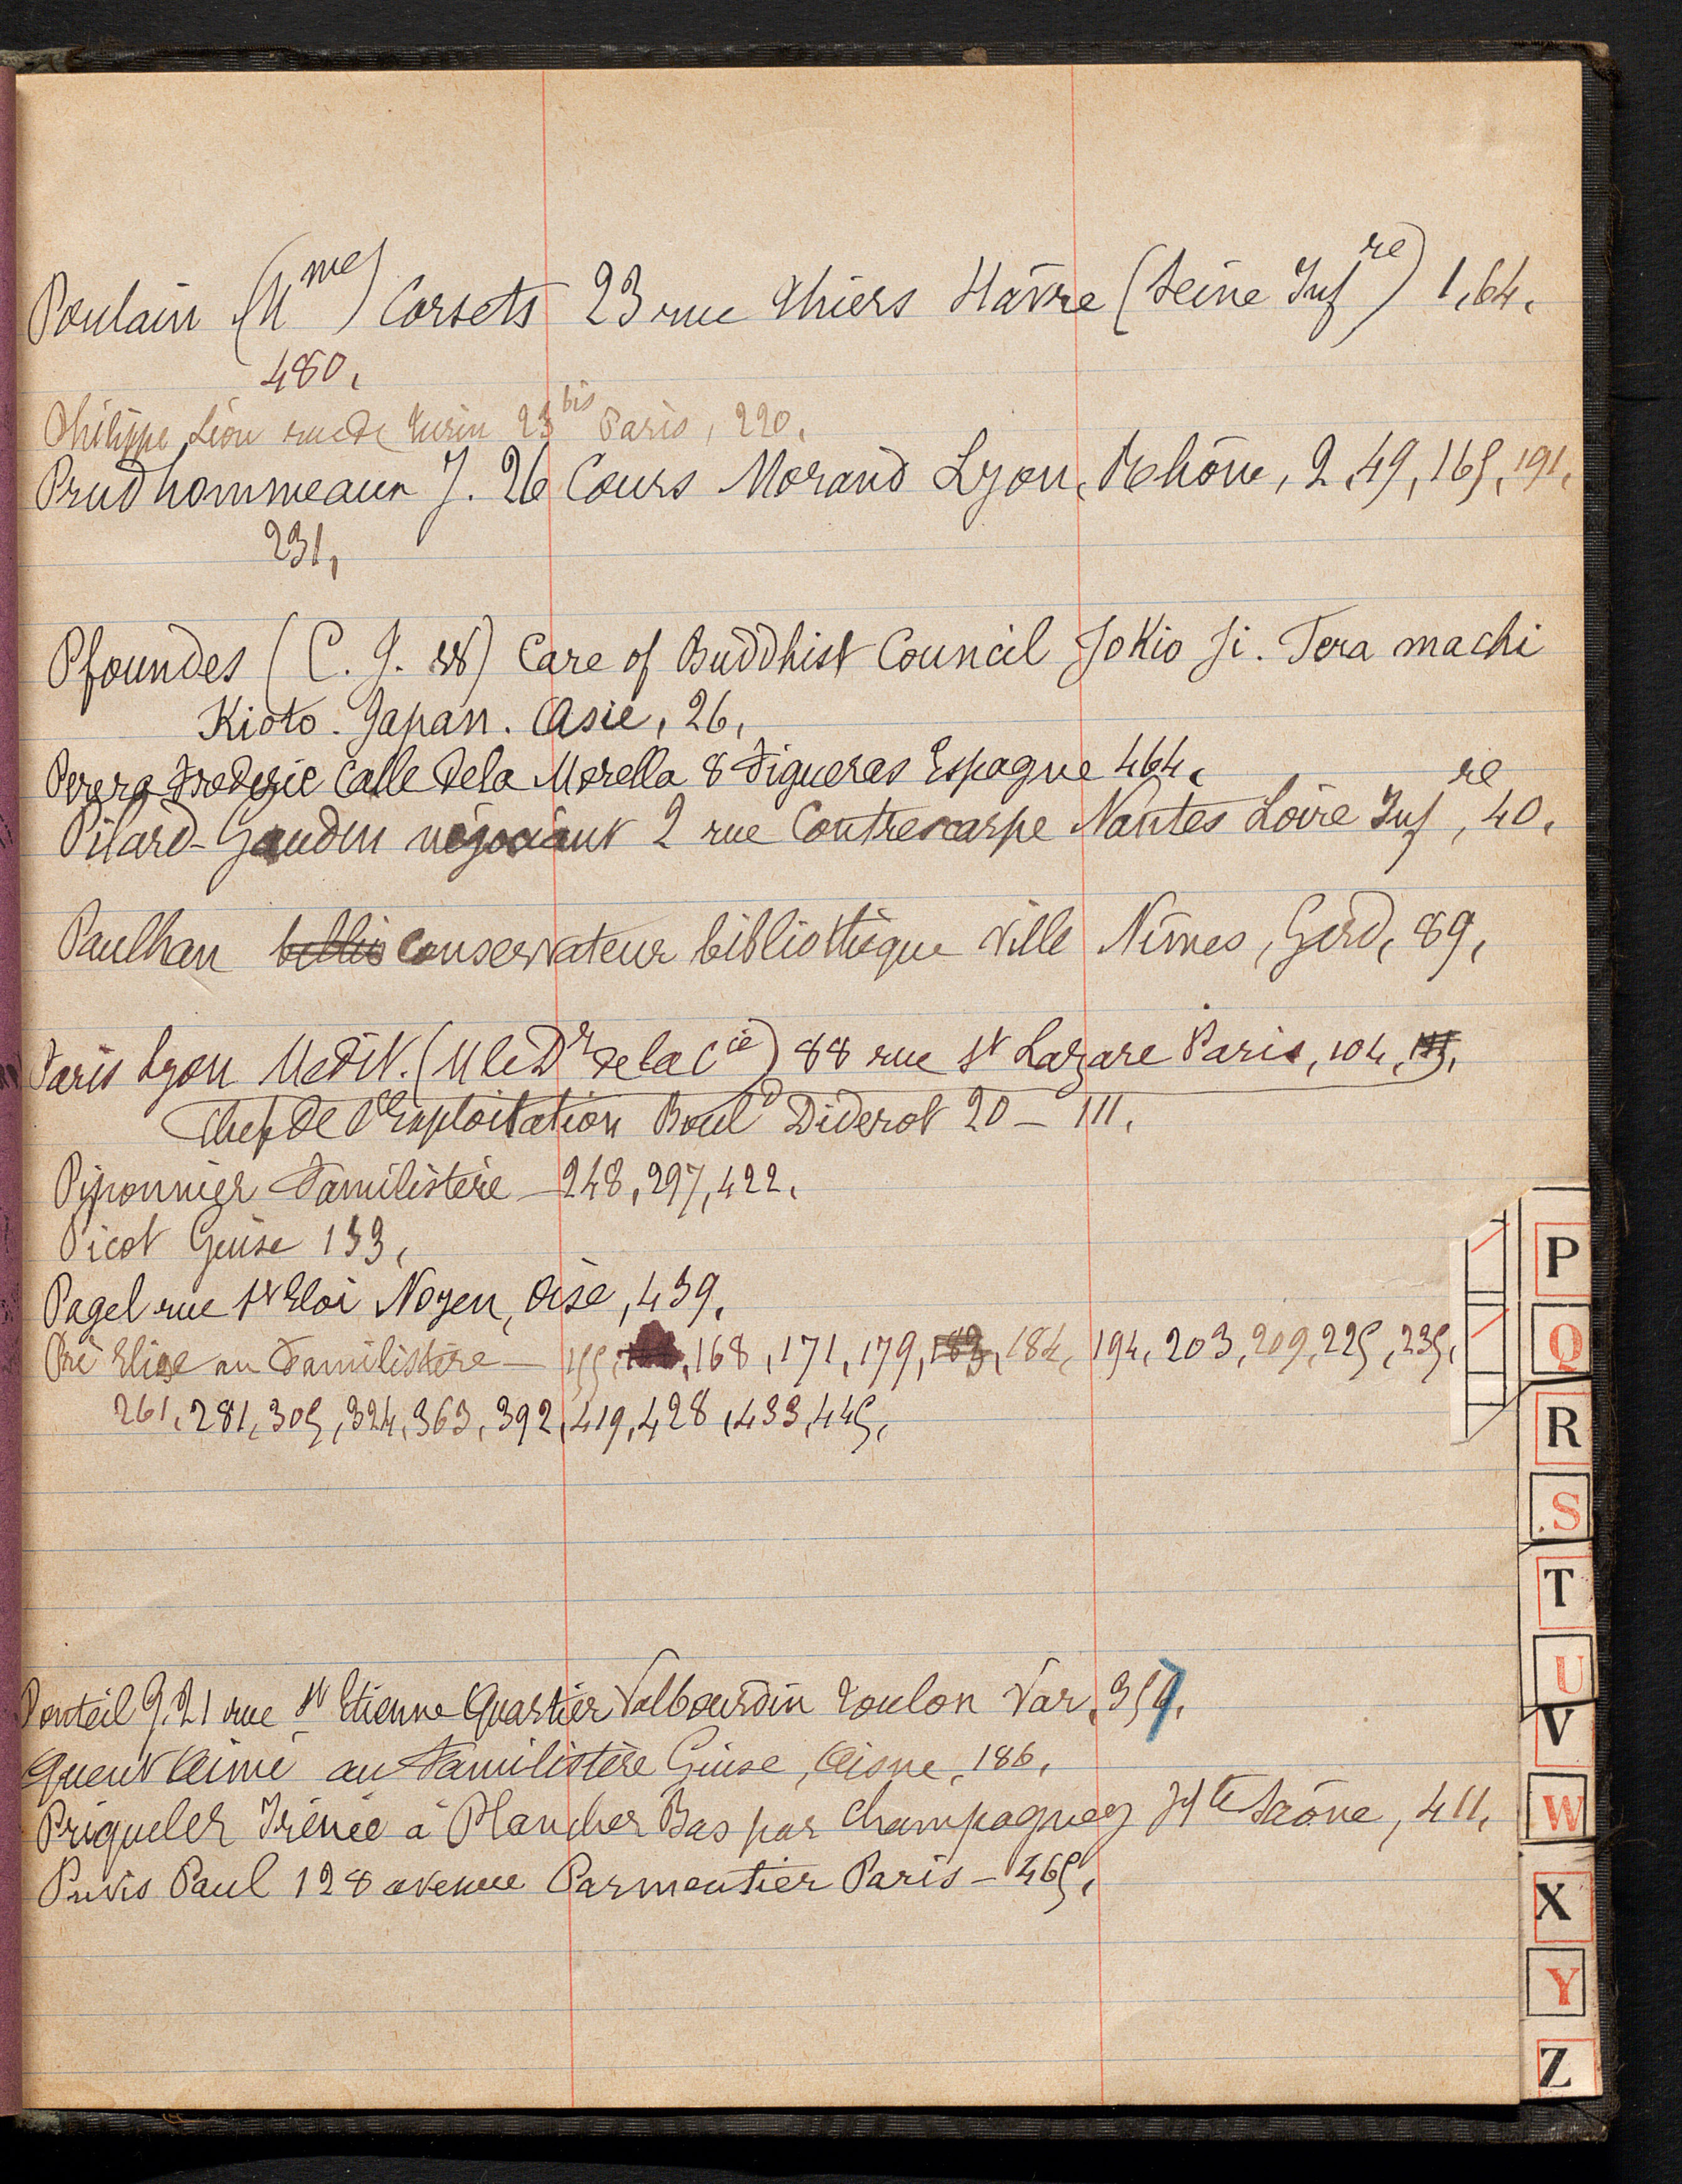 Poulain (Mme) Corsets 23 rue Thiers Hâvre (Seine Infre) 1, 64,
480,
Philippe Léon rue de Turin 23 bis Paris, 220,
Prudhommeaux J. 26 Cours Morand Lyon, Rhône, 2, 49, 165, 191,
231,
Pfoundes (C. J. W) Care of Buddhist Council Jokio Ji. Tera machi
Kioto. Japan. Asie, 26,
Perera Frederic Calle de la Morella 8 Figueras Espagne 464,
Pilard-Gaudin négociant 2 rue Contrescarpe Nantes Loire Infre, 40,
Paulhan conservateur bibliothèque ville Nîmes, Gard, 89,
Paris Lyon Médit. (M le Dr de la Cie) 88 rue St Lazare Paris, 104,
Chef de l'Exploitation Bould Diderot 20 - 111,
Piponnier Familistère - 248, 297, 422,
Picot Guise 133,
Pagel rue St Eloi Noyen, Oise, 439,
Pré Elise au Familistère - 155, 168, 171, 179, 183, 184, 194, 203, 209, 225, 235,
261, 281, 305, 324, 363, 392, 419, 428, 433, 445,
Ponteil G. 21 rue St Etienne Quartier Valbourdin Toulon Var, 357,
Quent Aimé au Familistère Guise, Aisne, 186,
Priqueler Irénée à Plancher Bas par Champagney Hte Saône, 411,
Puvis Paul 128 avenue Parmentier Paris - 465,
P
Q
R
S
T
U
V
W
X
Y
Z